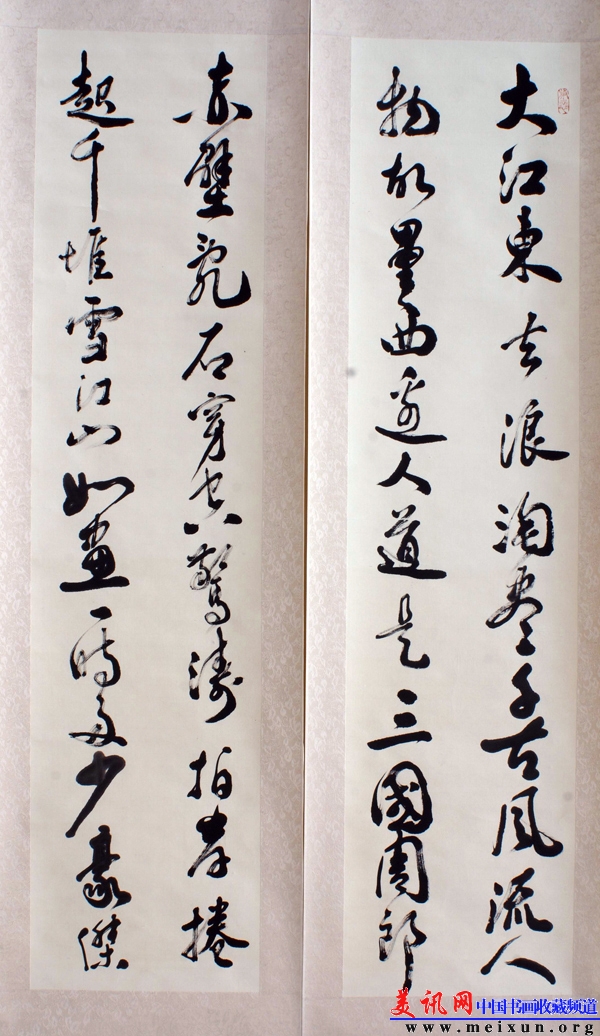 大江東去浪淘盡千古風流人
物故壘西邊人道是三國周郎
赤壁亂石穿空驚濤拍岸捲
起千堆雪江山如畫一時多少豪傑
美讯网 中国书画收藏频道
www.meixun.org